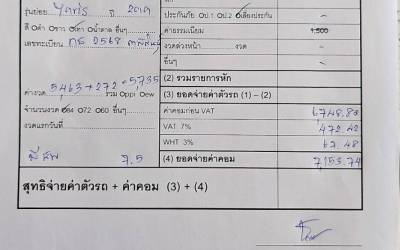 รุ่นย่อย ปี 2022
ประกันภัย ป.1 ป.2 เสี่ยงประกัน
สี ดำ ขาว เทา น้ำตาล อื่นๆ
ค่าธรรมเนียม 1,500
เลขทะเบียน 2568
งวดล่วงหน้า งวด -
อื่นๆ -
(2) รวมรายการหัก
ค่างวด 5,463+272=5,735 รวม ppi ew
(3) ยอดจ่ายค่าตัวรถ (1) – (2)
จำนวนงวด 84 72 60 อื่นๆ
ค่าคอมก่อน VAT 6,748.80
งวดแรกวันที่
VAT 7% 472.42
WHT 3% 67.48
(4) ยอดจ่ายค่าคอม 7,153.74
สุทธิจ่ายค่าตัวรถ + ค่าคอม (3) + (4)